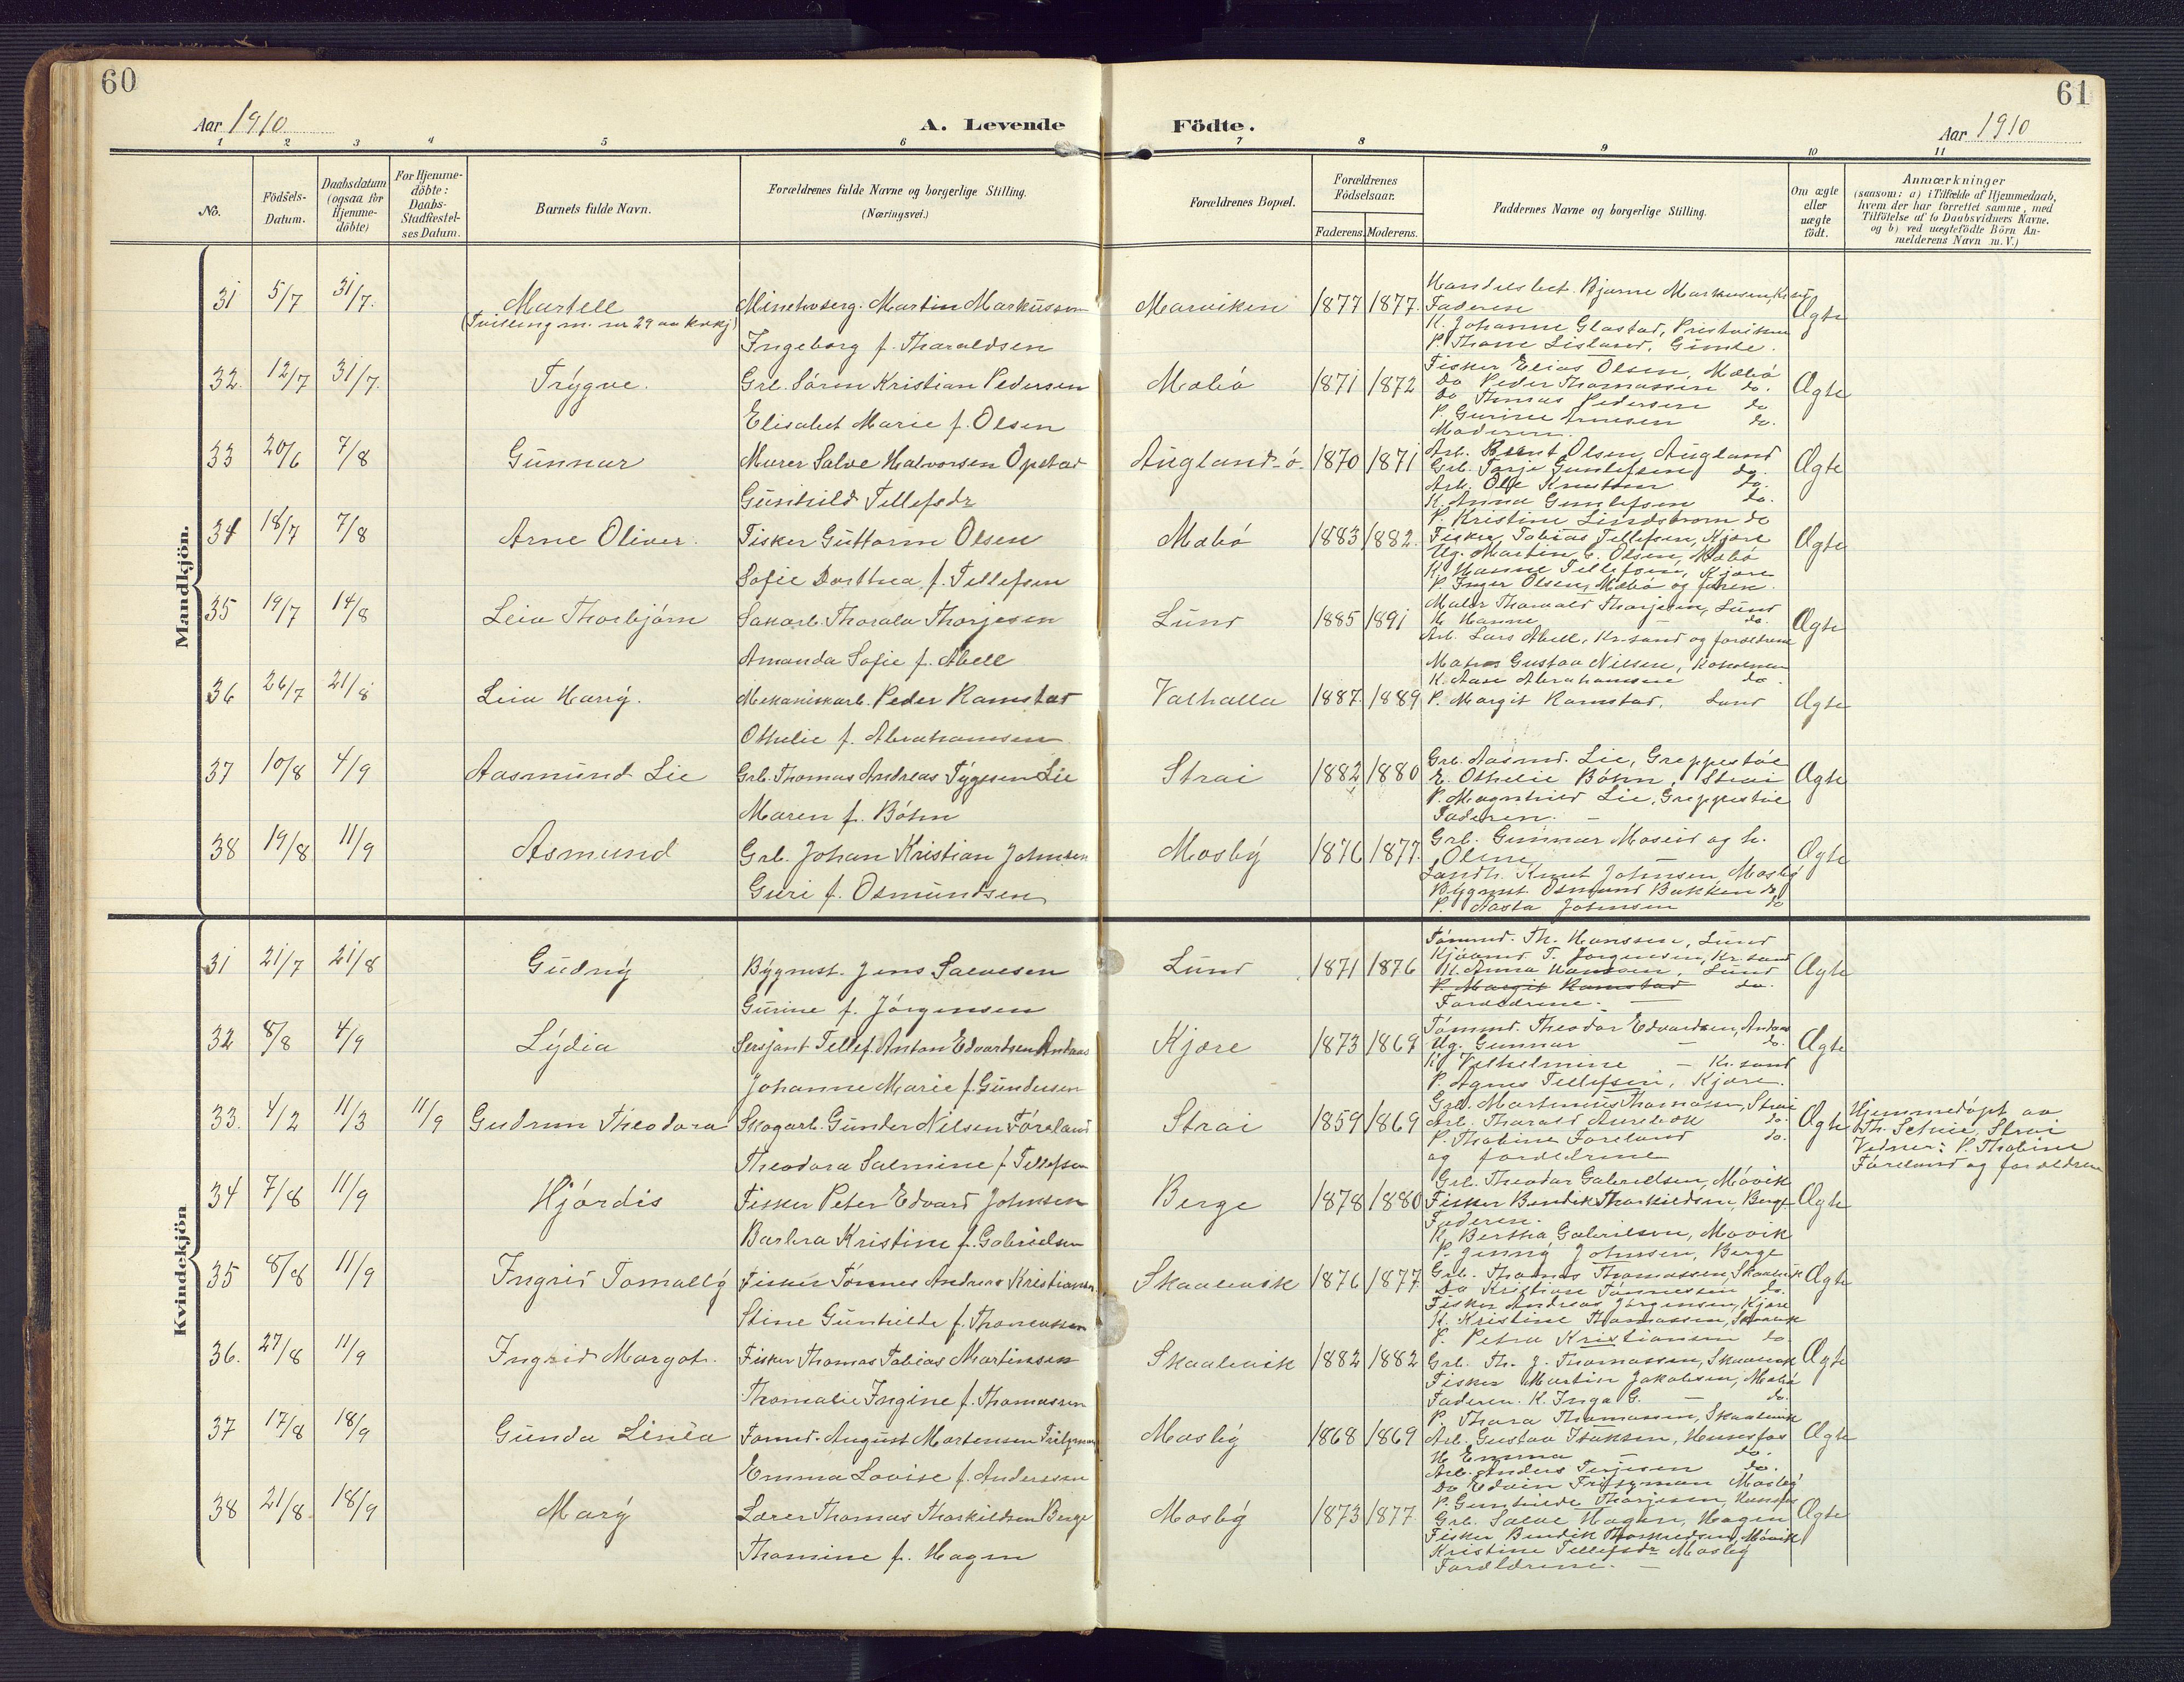 60
61
Aar 1910
A. Levende Födte.
Aar 1910
1 2 3 4 5 6 7 8 9 10 11
No.
Födsels-Datum.
Daabsdatum (ogsaa for Hjemme-döbte)
For Hjemme-döbte: Daabs-Stadfæstel-ses Datum.
Barnets fulde Navn.
Forældrenes fulde Navne og borgerlige Stilling.
(Næringsvei.)
Forældrenes Bopæl.
Forældrenes Födselsaar.
Faderens. Moderens.
Faddernes Navne og borgerlige Stilling.
Om ægte eller uægte födt.
Anmærkninger
(saasom: a) i Tilfælde af Hjemmedaab, hvem der har forrettet samme, med Tilföielse af to Daabsvidners Navne, og b) ved uægtefödte Börn An-melderens Navn m. V.)
Mandkjön.
31 5/7 31/7. Martell Martin Markussen Marviken 1877 1877. Bjarne Markussen Ægte
(Tvilling m. nr 29 av kvkj) Faderen
K. Johanne Glastad,
Ingeborg f. Tharaldsen P. Thone Lisland, Gimle.
32. 12/7 31/7. Trygve. Grb. Sören Kristian Pedersen Mæbö 1871 1872 Fisker Elias Olsen, Mæbö Ægte
Do Peder Thomassen do.
Do Thomas Pedersen do
Elisabet Marie f. Olsen P. Gurine Arnesen do.
Moderen.
33 20/6 7/8 Gunnar Murer Salve Halvorsen Opstad Augland-ö. 1870 1871 Arb. Bernt Olsen, Augland Ægte
Grb. Tarje Gunlefsen do.
Arb. Ole Knutsen do.
Gunhild Tellefsdr K. Anna Gunlefsen do.
P. Kristine Lindstrøm do
34 18/7 7/8 Arne Oliver. Fisker Guttorm Olsen Mæbö 1883 1882. Fisker Tobias Tellefsen, Kjære Ægte
Ug. Martin E. Olsen, Mæbö
K. Hanne Tellefsen, Kjære
Sofie Dorthea f. Tellefsen P. Inger Olsen, Mæbö og faren.
35 19/7 14/8 Leiv Thorbjørn Sakarb. Thorala Thorjesen Lund 1885 1891 Maler Thorvald Thorjesen, Lund Ægte
H Hanne — do.
Arb. Lars Abell, Kr.sand og forældrene
Amanda Sofie f. Abell
36 26/7 21/8 Leiv Harry. Mekaniskarb. Peder Ramstad Valhalla 1887. 1889 Gustav Nilsen, Ægte
K. Aase Abrahamsen do.
P. Margit Ramstad, Lund
Othelie f. Abrahamsen
37 10/8 4/9 Aasmund Lie Grb. Thomas Andreas Tygesen Lie Strai 1882 1880 Grb. Aasmd. Lie, Greppestöl Ægte
E. Othelie Böhn, Strai
P. Magnhild Lie, Greppestöl
Maren f. Böhn Faderen. —
38 19/8 11/9 Asmund Grb. Johan Kristian Johnsen Mosby 1876 1877. Grb. Gunnar Moseid og h. Ægte
Oline
Landh. Knut Johnsen, Mosby
Guri f. Osmundsen Bygmst. Osmund Bakken do
P. Aasta Johnsen do
Kvindekjön
31 21/7 21/8 Gudny Bygmst. Jens Salvesen Lund 1871 1876 Tömmd. Th. Hanssen, Lund Ægte
Kjöbmd T. Jørgensen, Kr.sand
K. Anna Hanssen, Lund
Gurine f. Jörgensen P. Margit Ramstad do.
Forældrene. —
32 8/8 4/9 Lydia Sersjant Tellef Anton Edvardsen Andaas Kjære 1873 1869 Tömmd. Theodor Edvardsen, Andaas Ægte
Ug. Gunnar — do.
K Vilhelmine — Kr.sand
Johanne Marie f. Gundersen P. Agnes Tellefsen, Kjære.
33. 4/2 11/3 11/9 Gudrun Theodora Skogarb. Gunder Nilsen Föreland Strai 1859 1869 Grb. Martinius Thomassen, Strai Ægte Hjemmedöpt av
Arb. Tharald Aurebæk do. Th. Strai
P. Thobine Föreland do. Vidner: P. Thobine
Theodora Salmine f. Tellefsen og forældrene Föreland og forældrene
34 7/8 11/9 Hjördis Fisker Peter Edvard Johnsen Berge 1878 1880 Grb. Theodor Gabrielsen, Mövik Ægte
Fisker Bendik Thorkildsen, Berge
Faderen.
Barbra Kristine f. Gabrielsen K. Bertha Gabrielsen, Mövik
P. Jenny Johnsen, Berge
35 8/8 11/9 Ingrid Tomally Fisker Tönnes Andreas Kristiansen Skaalevik 1876 1877 Grb. Thomas Thomassen, Skaalevik Ægte
Do Kristian Tönnessen do.
Fisker Andreas Jörgensen, Kjære
Stine Gunhilde f. Thomassen K. Kristine Thomassen, Skaalevik
P. Petra Kristiansen do
36. 27/8 11/9 Ingrid Margot. Fisker Thomas Tobias Martinsen Skaalevik 1882 1882 Grb. Th. J. Thomassen, Skaalevik Ægte
Fisker Martin Jakobsen, Mæbö
Faderen. K. Inga G. — do.
Thomalie Ingine f. Thomassen P. Thora Thomassen, Skaalevik
37 17/8 18/9 Gunda Linéa Tömmd. August Mortensen Mosby 1868 1869 Arb. Gustav Isaksen, Hunsfos Ægte
H Emma — do.
Arb. Anders Terjesen do.
Emma Lovise f. Anderssen Do Edvin Mosby
P. Gunhilde Thorjesen, Hunsfos
38 21/8 18/9 Mary Lærer Thomas Thorkildsen Berge Mosby 1873 1877 Grb. Salve Hagen, Hagen Ægte
Fisker Bendik Thorkildsen, Mövik
Kristine Tellefsdr Mosby
Thomine f. Hagen Forældrene. —